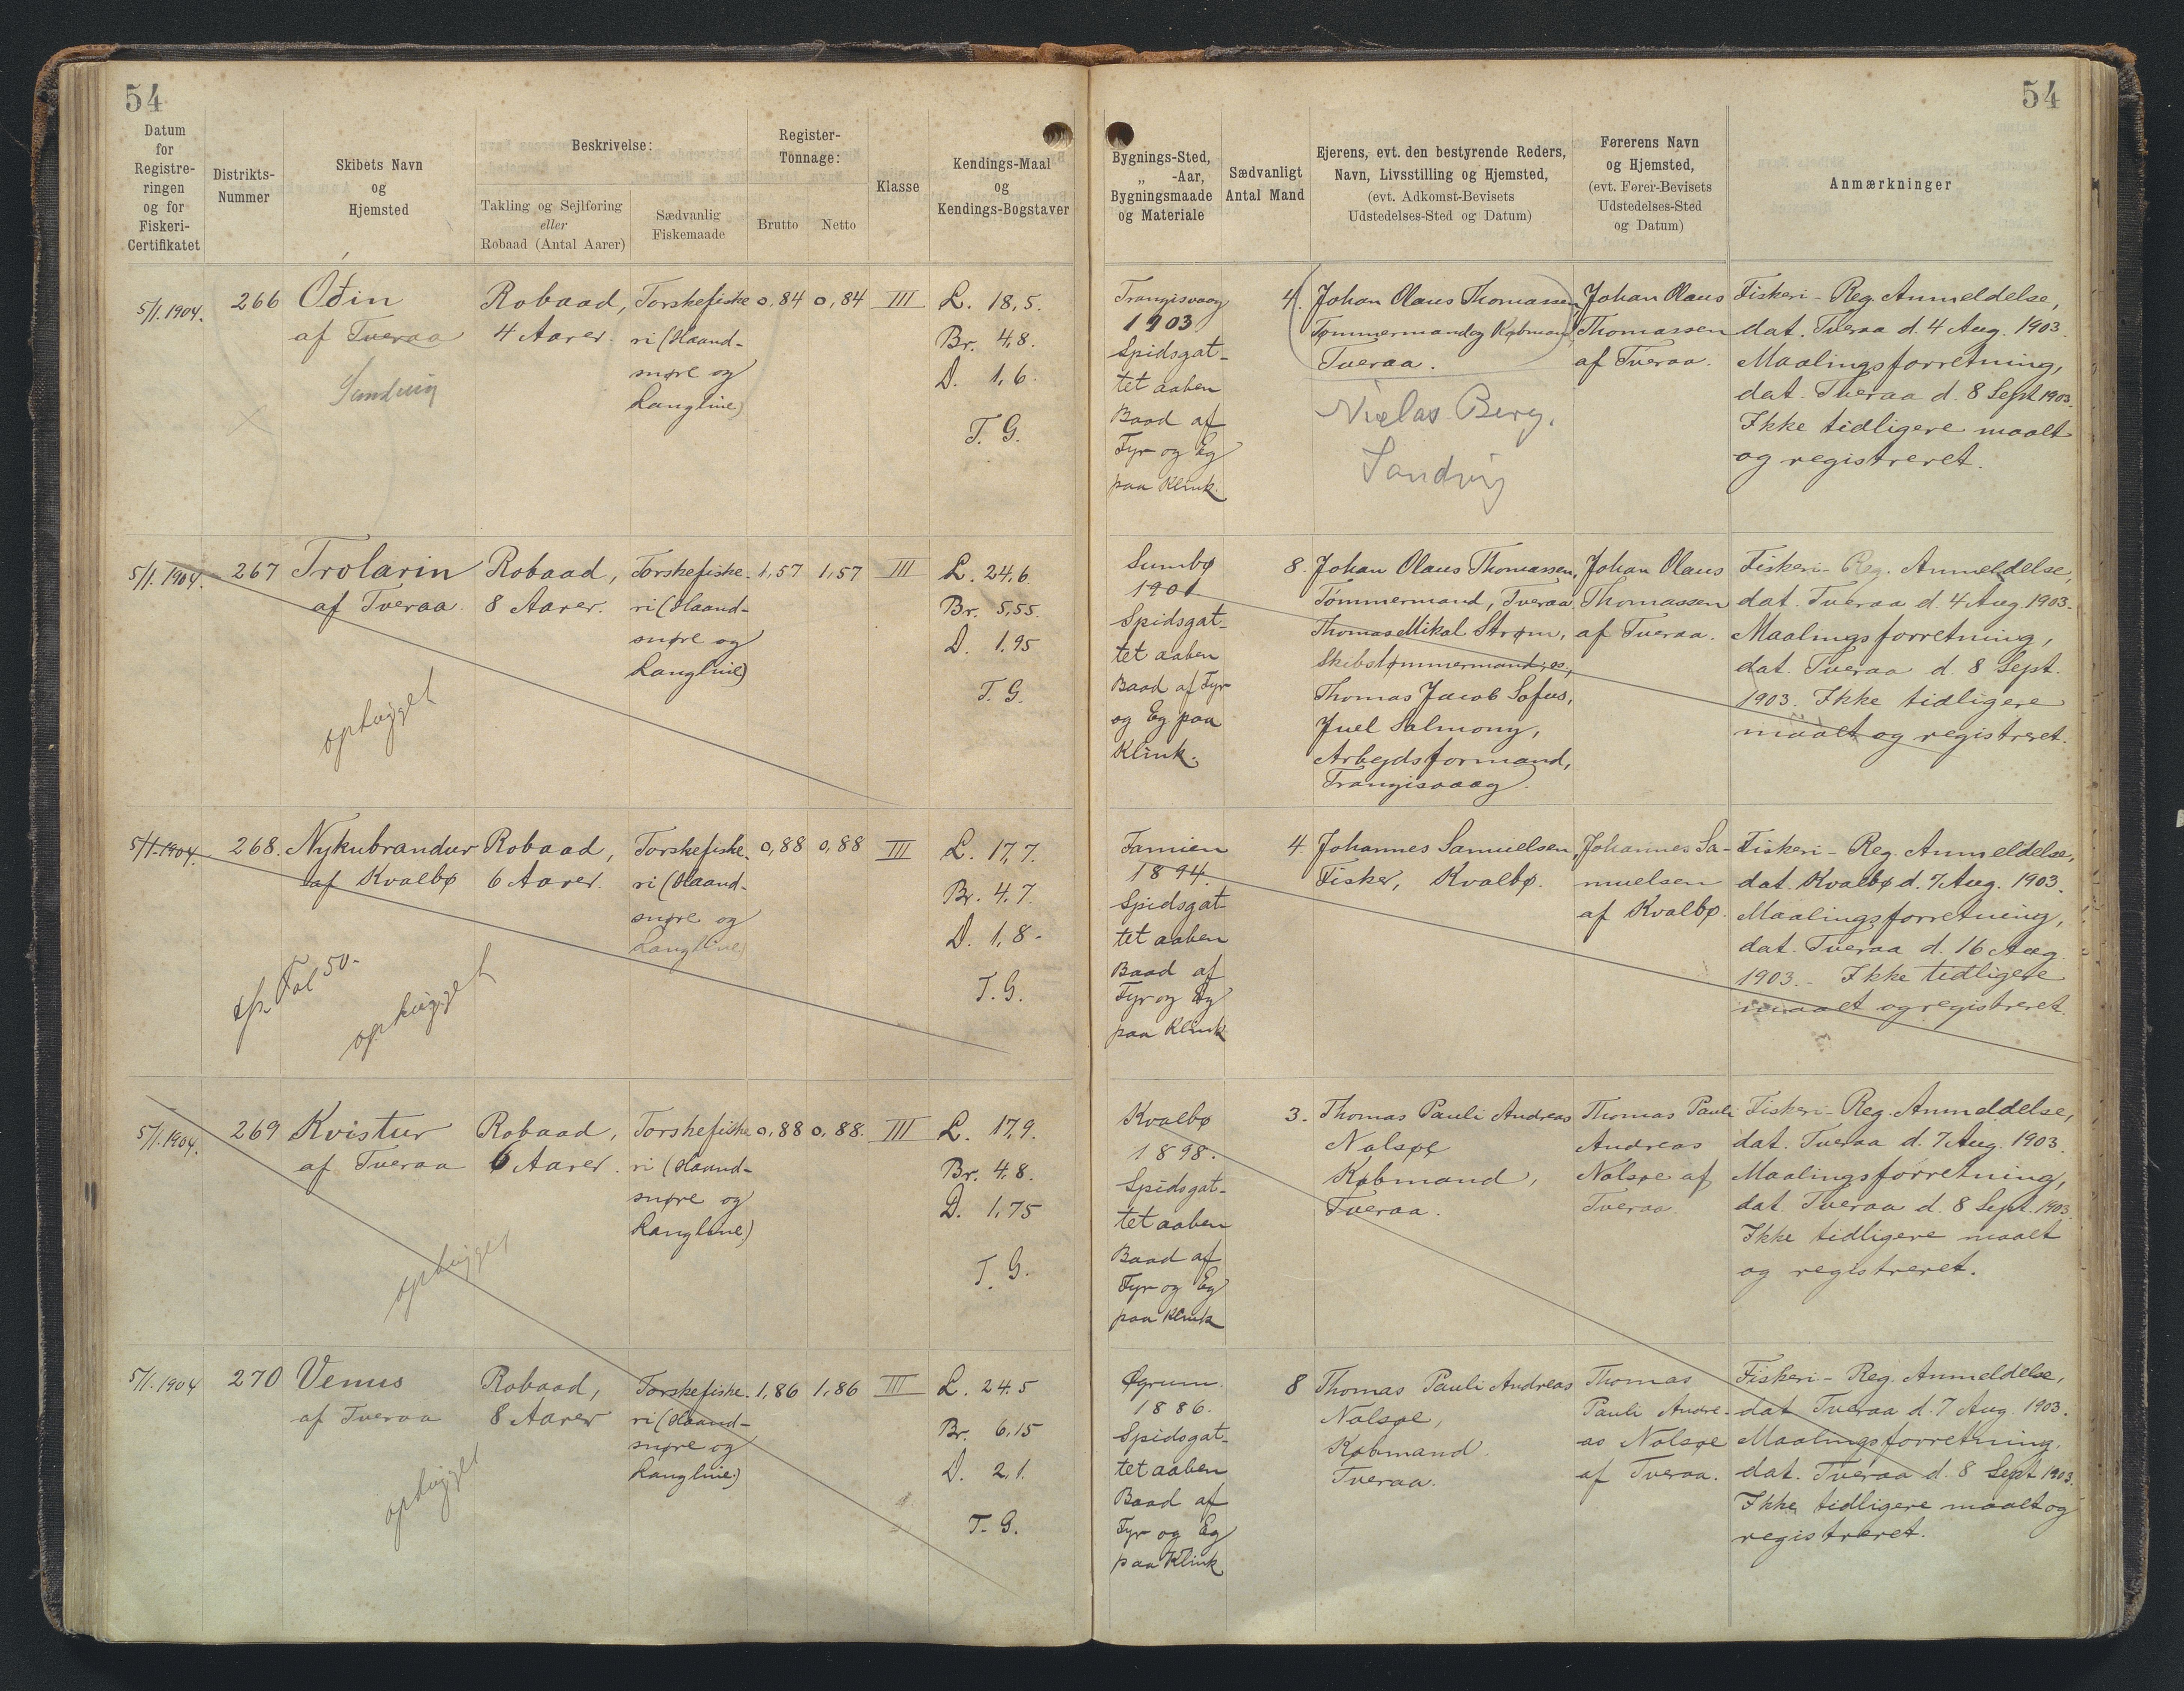 54
54
Datum for Registreringen og for Fiskeri-Certifikatet
Distrikts-Nummer
Skibets Navn og Hjemsted
Beskrivelse:
Takling og Sejlføring eller Robaad (Antal Aarer)
Sædvanlig Fiskemaade
Register-Tonnage:
Brutto
Netto
Klasse
Kendings-Maal og Kendings-Bogstaver
Bygnings-Sted, „ -Aar, Bygningsmaade og Materiale
Sædvanligt Antal Mand
Ejerens, evt. den bestyrende Reders, Navn, Livsstilling og Hjemsted, (evt. Adkomst-Bevisets Udstedelses-Sted og Datum)
Førerens Navn og Hjemsted, (evt. Fører-Bevisets Udstedelses-Sted og Datum)
Anmærkninger
5/1. 1904.
266
Óðin
af Tveraa
Sandvig
Robaad,
4 Aarer.
Torskefiske
ri (Haand-
snøre og
Langline)
0,84
0,84
III
L. 18,5.
Br. 4,8.
D. 1,6.
T. G.
Trangisvaag
1903
Spidsgat-
tet aaben
Baad af
Fyr og Eg
paa Klink.
4.
Johan Olaus Thomassen,
Tømmermand og Købmand,
Tveraa.
Niclas Berg.
Sandvig
Johan Olaus
Thomassen
af Tveraa.
Fiskeri-Reg. Anmeldelse,
dat. Tveraa d. 4 Aug. 1903.
Maalingsforretning,
dat. Tveraa d. 8 Sept 1903.
Ikke tidligere maalt
og registreret.
5/1. 1904.
267
Trolarin
af Tveraa.
ophugget
Robaad,
8 Aarer.
Torskefiske-
ri (Haand-
snøre og
Langline)
1,57
1,57
III
L. 24,6
Br. 5,55.
D. 1,95
T. G.
Sumbø
1901
Spidsgat-
tet aaben
Baad af Fyr
og Eg paa
Klink.
8.
Johan Olaus Thomassen,
Tømmermand, Tveraa,
Thomas Mikal Strøm,
Skibstømmermand, os,
Thomas Jacob Sofus,
Juel Salmony,
Arbejdsformand,
Trangisvaag.
Johan Olaus
Thomassen
af Tveraa.
Fiskeri-Reg. Anmeldelse,
dat. Tveraa d. 4 Aug. 1903.
Maalingsforretning,
dat. Tveraa d. 8 Sept.
1903. Ikke tidligere
maalt og registreret.
5/1. 1904.
268.
Nykubrandur
af Kvalbø
Fol 50-
ophugget
Robaad,
6 Aarer.
Torskefiske-
ri (Haand-
snøre og
Langline)
0,88
0,88
III
L. 17,7.
Br. 4,7.
D. 1,8-
T. G.
Famien
1894.
Spidsgat-
tet aaben
Baad af
Fyr og Eg
paa Klink
4
Johannes Samuelsen,
Fisker, Kvalbø.
Johannes Sa-
muelsen
af Kvalbø.
Fiskeri-Reg. Anmeldelse,
dat. Kvalbø d. 7 Aug. 1903.
Maalingsforretning,
dat. Tveraa d. 16 Aug
1903.- Ikke tidligere
maalt og registreret.
5/1. 1904.
269
Kvistur
af Tveraa
ophugget
Robaad,
6 Aarer.
Torskefiske
ri (Haand-
snøre og
Langline)
0,88
0,88.
III
L. 17,9.
Br. 4,8.
D. 1,75
T. G.
Kvalbø
1898.
Spidsgat-
tet aaben
Baad af
Fyr og Eg
paa Klink
3.
Thomas Pauli Andreas
Nolsøe
Købmand,
Tveraa.
Thomas Pauli
Andreas
Nolsøe af
Tveraa.
Fiskeri-Reg. Anmeldelse,
dat. Tveraa d. 7 Aug. 1903.
Maalingsforretning,
dat. Tveraa d. 8 Sept. 1903.
Ikke tidligere maalt
og registreret.
5/1. 1904
270
Venus
af Tveraa
ophugget
Robaad,
8 Aarer
Torskefiske-
ri (Haand-
snøre og
Langline)
1,86
1,86
III
L. 24,5
Br. 6,15
D. 2,1.
T. G.
Øgrum.
1886.
Spidsgat-
tet aaben
Baad af
Fyr og Eg
paa Klink
8
Thomas Pauli Andreas
Nolsøe,
Købmand.
Tveraa.
Thomas
Pauli Andre-
as Nolsøe
af Tveraa.
Fiskeri-Reg. Anmeldelse,
dat. Tveraa d. 7 Aug. 1903.
Maalingsforretning,
dat. Tveraa d. 8 Sept 1903.
Ikke tidligere maalt og
registreret.